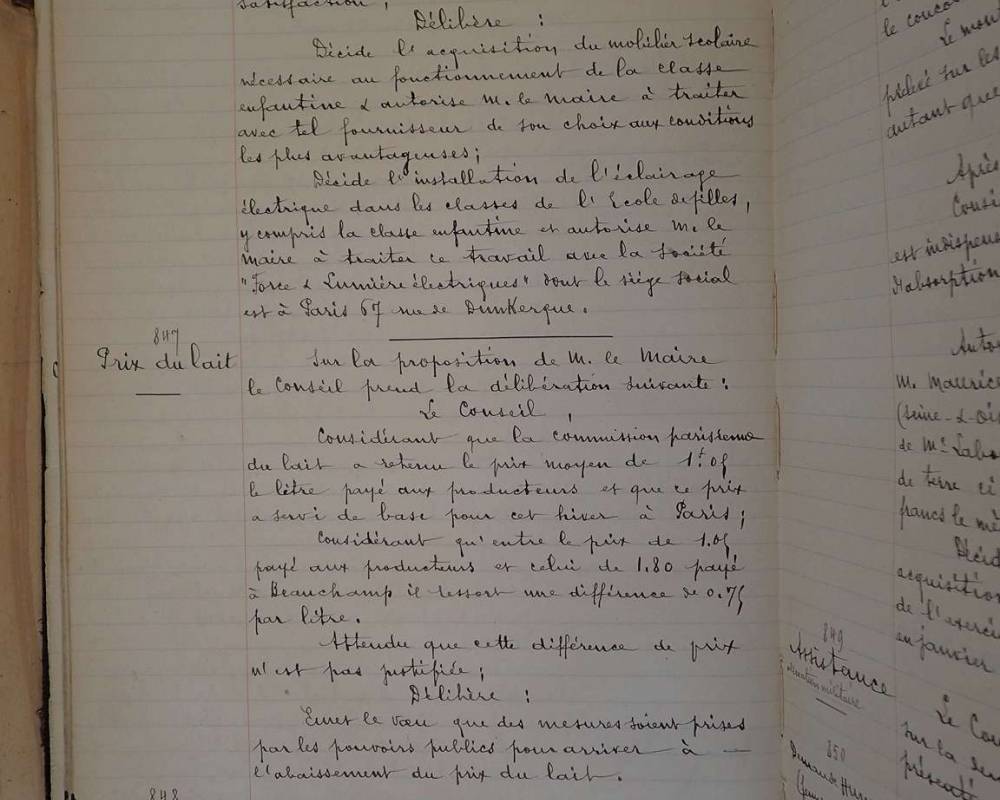 satisfaction ;
Délibère :
Décide l'acquisition du mobilier scolaire
nécessaire au fonctionnement de la classe
enfantine & autorise M. le Maire à traiter
avec tel fournisseur de son choix aux conditions
les plus avantageuses ;
Décide l'installation de l'éclairage
électrique dans les classes de l'Ecole de filles,
y compris la classe enfantine et autorise M. le
Maire à traiter ce travail avec la Société
"Force & Lumière électriques" dont le siège social
est à Paris 67 rue de Dunkerque.
847
Prix du lait
Sur la proposition de M. le Maire
le Conseil prend la délibération suivante :
Le Conseil,
Considérant que la commission parisienne
du lait a retenu le prix moyen de 1f.05
le litre payé aux producteurs et que ce prix
a servi de base pour cet hiver à Paris ;
Considérant qu'entre le prix de 1.05
payé aux producteurs et celui de 1.80 payé
à Beauchamp il ressort une différence de 0.75
par litre.
Attendu que cette différence de prix
n'est pas justifiée ;
Délibère :
Emet le vœu que des mesures soient prises
par les pouvoirs publics pour arriver à —
l'abaissement du prix du lait.
848
le conco
Le mon
prélevé sur les
autant que
Après
Consi
est indispens
d'absorption
Auto
M. Maurice
(Seine-&-Ois
de Mr Labo
de terre
francs le mè
Décid
acquisition
de l'exerci
en janvier
849
Assistance
militaire
Le Con
Sur la dem
présenté
850